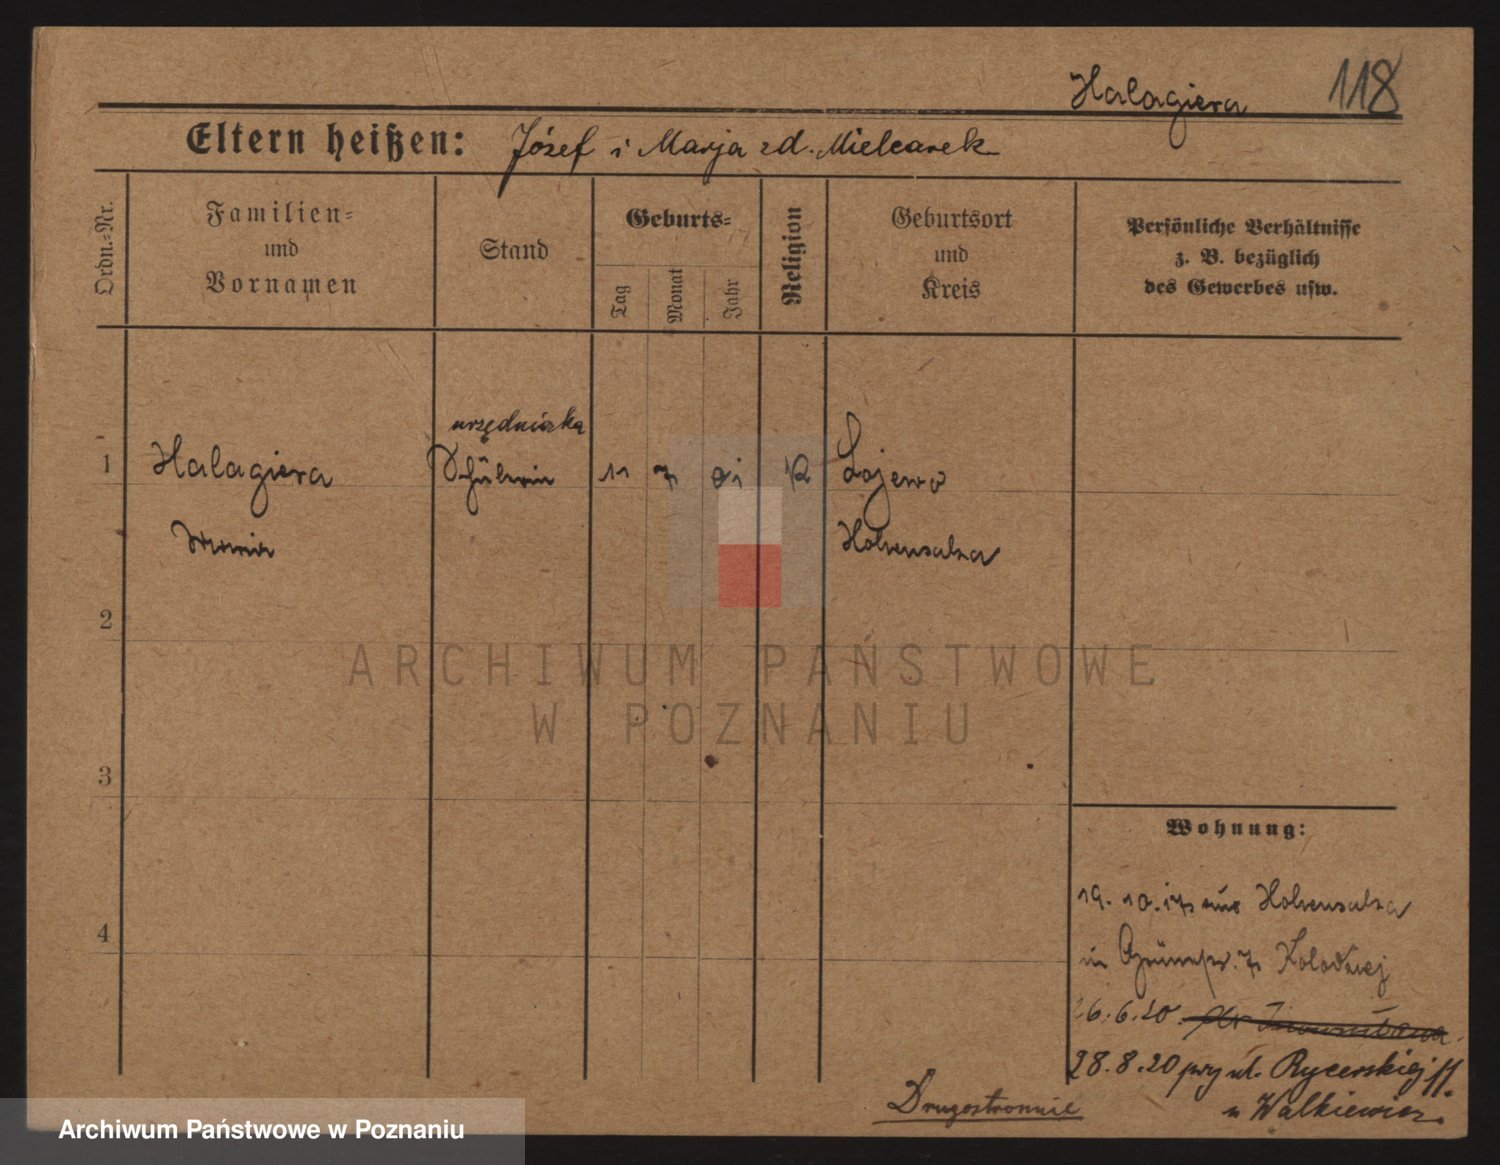 Halagiera 118
Eltern heißen: Józef i Marja zd. Mielcarek
Ordn.-Nr.
Familien-
und
Vornamen
Stand
Geburts-
Tag
Monat
Jahr
Religion
Geburtsort
und
Kreis
Persönliche Verhältnisse
z. B. bezüglich
des Gewerbes usw.
urzędniczka
1 Halagiera Schülerin 11 7 R Lojewo
Hohensalza
2
3
4
ARCHIWUM PAŃSTWOWE
W POZNANIU
Wohnung:
19. 10. 17 aus Hohensalza
in 7 Kolodziej
26.6.20.
28.8.20 przy ul. Rycerskiej 11.
u Walkiewicz.
Drugostronnie
Archiwum Państwowe w Poznaniu